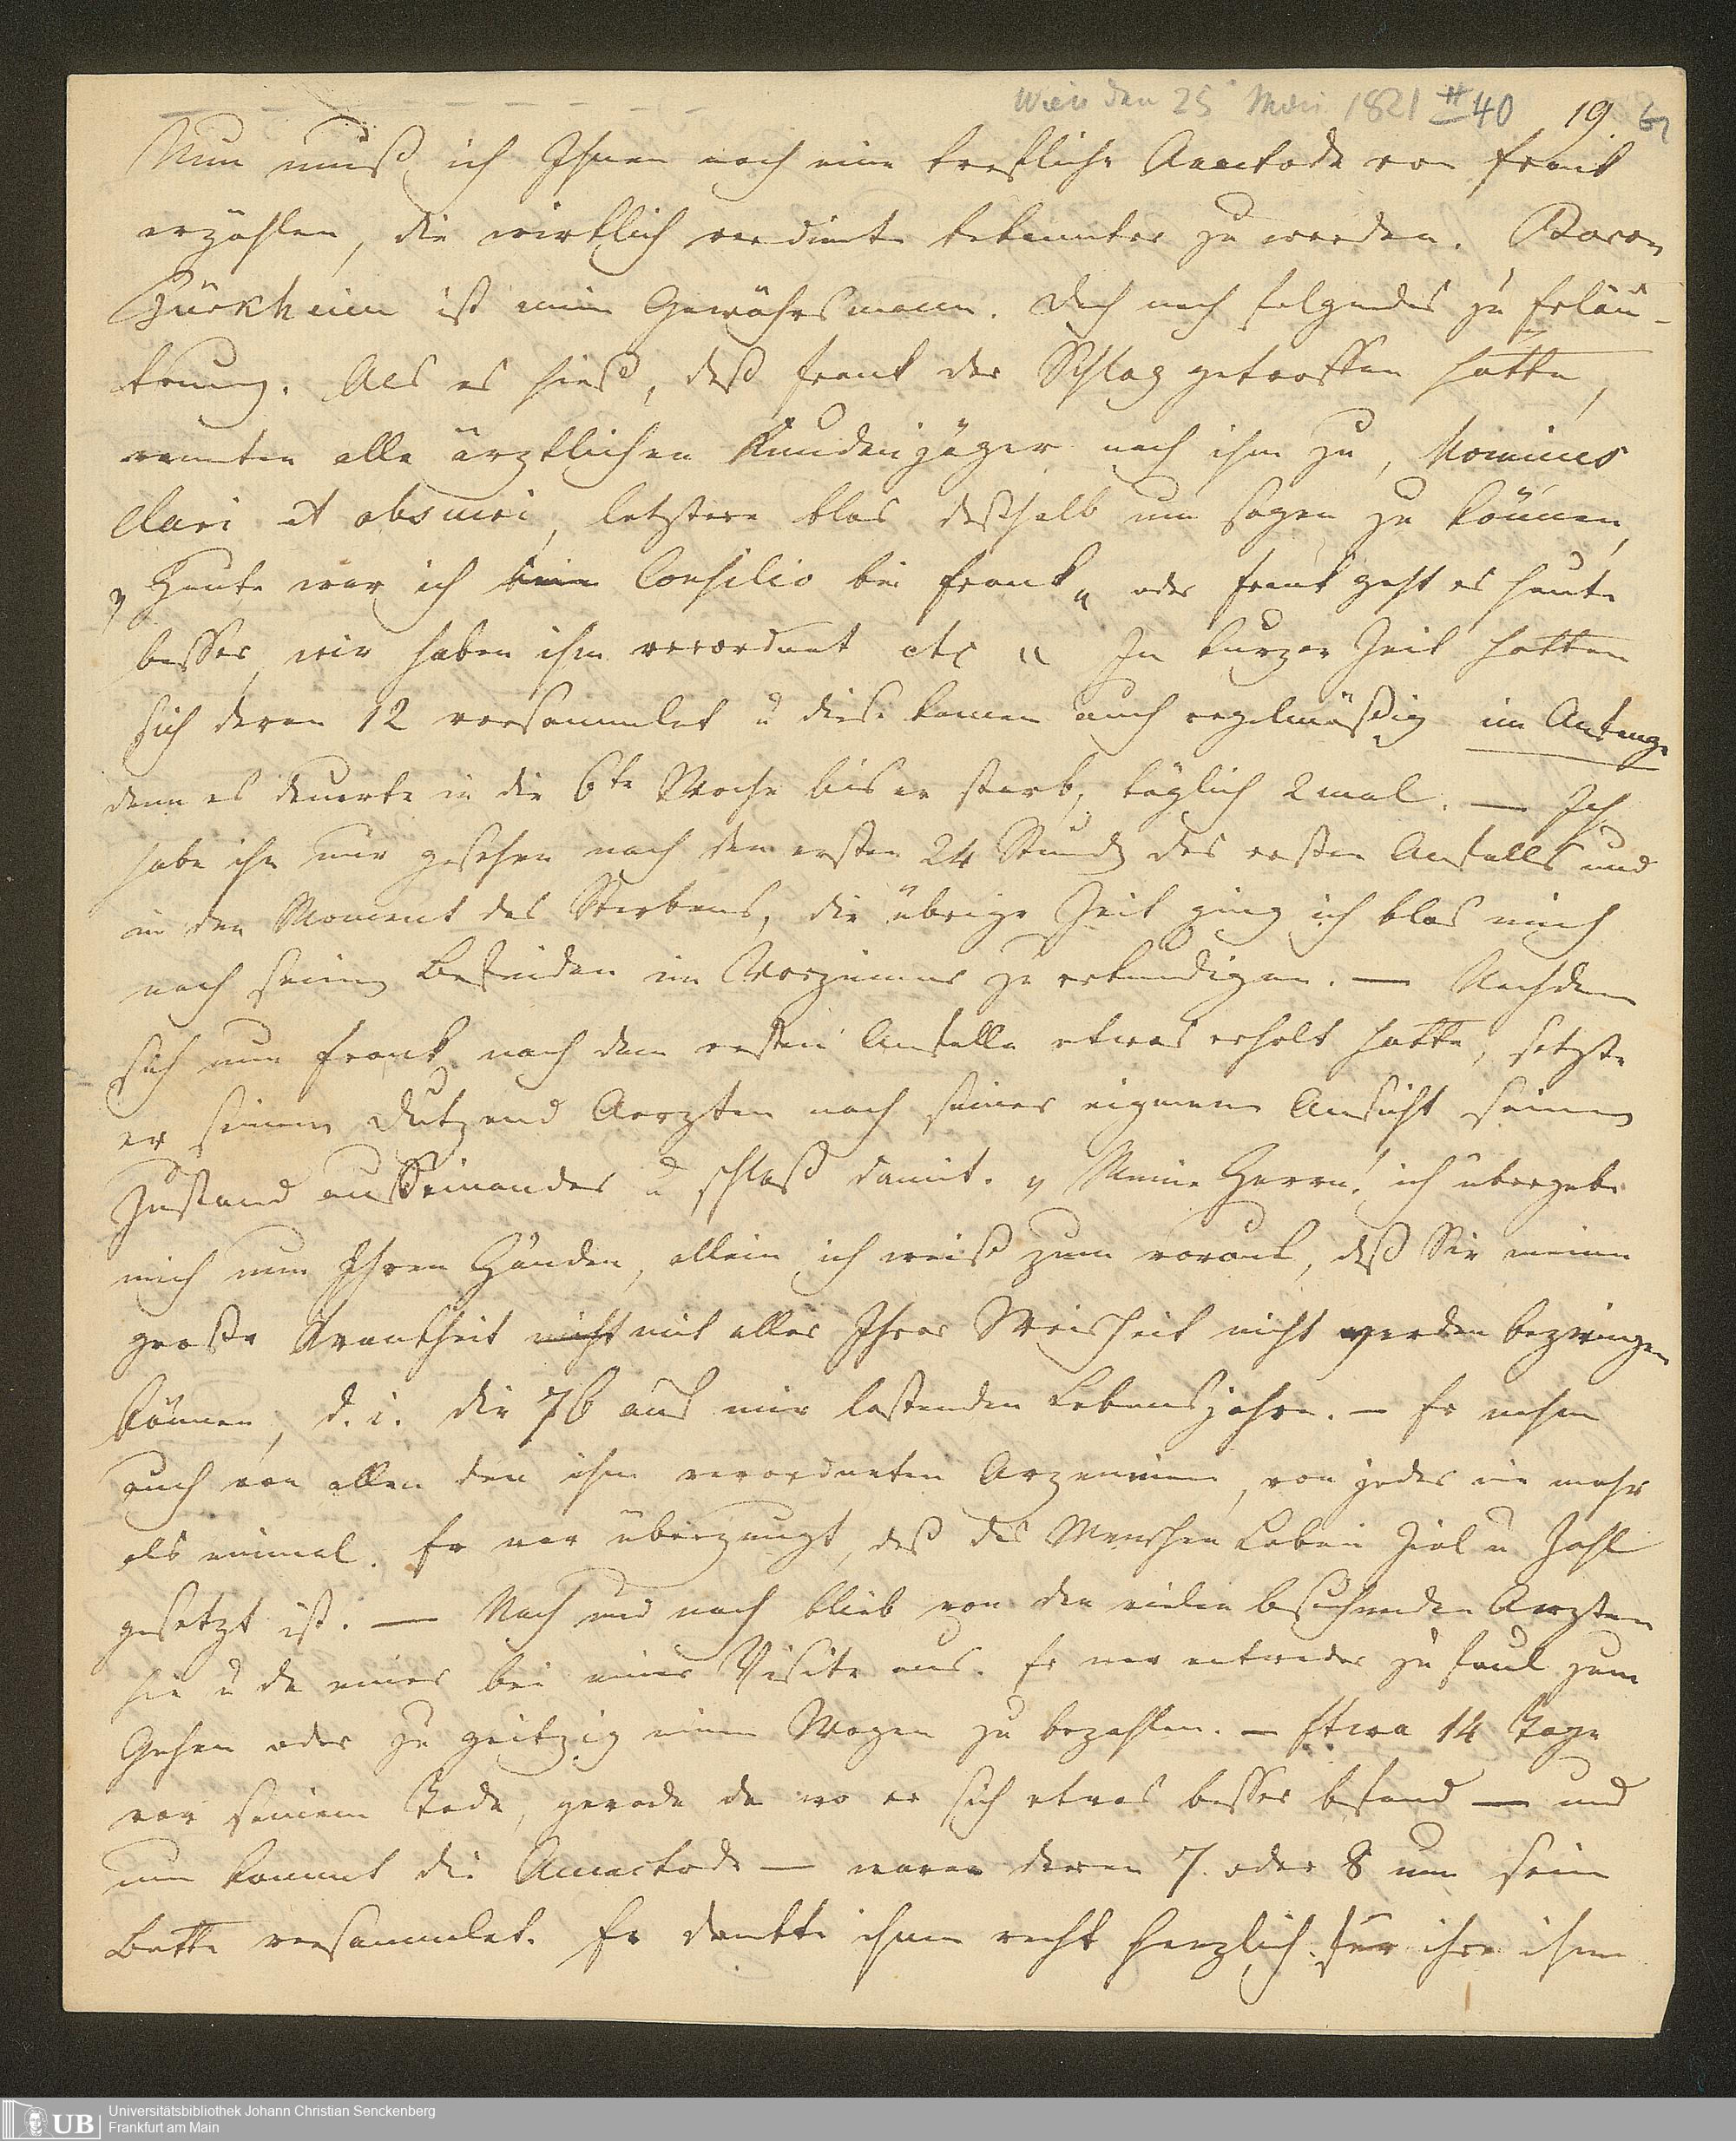 Wien den 25 März 1821 # 40 19.
Nun muß ich Ihnen noch eine treffliche Anectode von Frank
erzählen, die wirklich verdiente bekannter zu werden. Baron
Türkheim ist mein Gewährsmann. Doch noch folgendes zu Erläu-
terung. Als es hieß, daß Frank der Schlag getroffen hatte,
rannten alle ärztlichen Kundenjäger nach ihm zu, Homines
clari et obscuri, letztere blos deßhalb um sagen zu können,
„Heute war ich beim Consilio bei Frank" oder Frank geht es heute
besser, wir haben ihm verordnet etc " In kurzer Zeit hatten
sich deren 12 versammlet u diese kamen auch regelmäßig im Anfange
denn es dauerte in die 6te Woche bis er starb, täglich 2 mal. — Ich
habe ihn nur gesehen nach den ersten 24 Stunden des ersten Anfalls und
in den Moment des Sterbens, die übrige Zeit ging ich blos mich
nach seinem Befinden im Vorzimmer zu erkundigen. — Nachdem
sich nun Frank nach dem ersten Anfalle etwas erholt hatte, setzte
er seinem Dutzend Aerzten nach seiner eigenen Ansicht seinen
Zustand auseinander u schloß damit. „Meine Herrn! ich übergebe
mich nun Ihren Händen, allein ich weiß zum voraus, daß Sie meine
große Krankheit nicht mit aller Ihrer Weisheit nicht werden bezwingen
können, d. i. die 76 auf mir lastenden Lebensjahre. — Er nahm
auch von allen den ihm verordneten Arzeneien, von jeder nie mehr
als einmal. Er war überzeugt, daß des Menschen Leben Ziel u Zahl
gesetzt ist. — Nach und nach blieb von den vielen besuchenden Aerzten
hie u da einer bei einer Visite aus. Er war entweder zu faul zum
Gehen oder zu geitzig einen Wagen zu bezahlen. — Etwa 14 Tage
vor seinem Tode, gerade da wo er sich etwas besser befand — und
nun kommt die Anectode — waren deren 7. oder 8 um sein
Bette versammlet. Er dankte ihnen recht herzlich für ihre ihm
UB Universitätsbibliothek Johann Christian Senckenberg
Frankfurt am Main